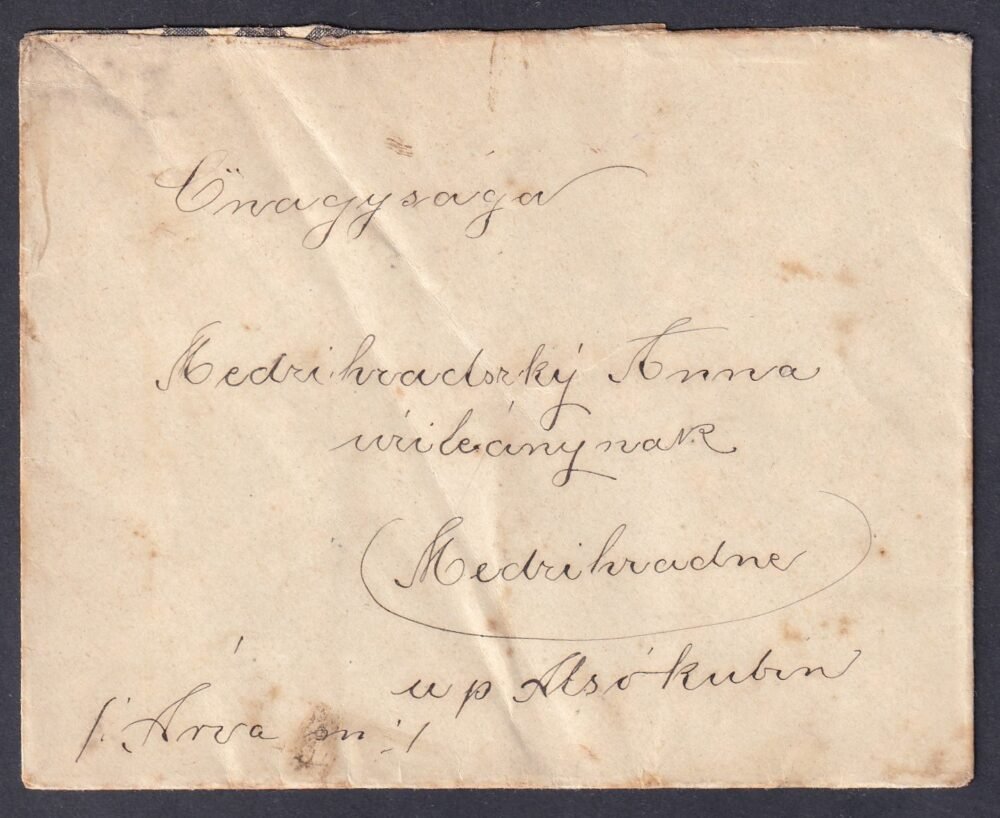 Önagysága
Medzihradszký Anna
úrileánynak
Medzihradne
u p Alsókubin
/: Árva m :/